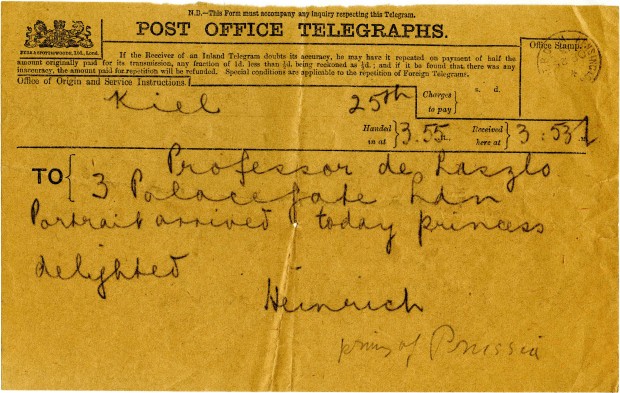 N.B.—This Form must accompany any inquiry respecting this Telegram.
POST OFFICE TELEGRAPHS.
If the Receiver of an Inland Telegram doubts its accuracy, he may have it repeated on payment of half the
amount originally paid for its transmission, any fraction of 1d. less than ½d. being reckoned as ½d.; and if it be found that there was any
inaccuracy, the amount paid for repetition will be refunded. Special conditions are applicable to the repetition of Foreign Telegrams.
Office Stamp.
Office of Origin and Service Instructions.
Charges to pay
s. d.
Kiel 25th
Handed in at 3.55
Received here at 3:53
TO Professor de Laszlo
3 Palacegate Ldn
Portrait arrived today princess
delighted
Heinrich
of Prussia